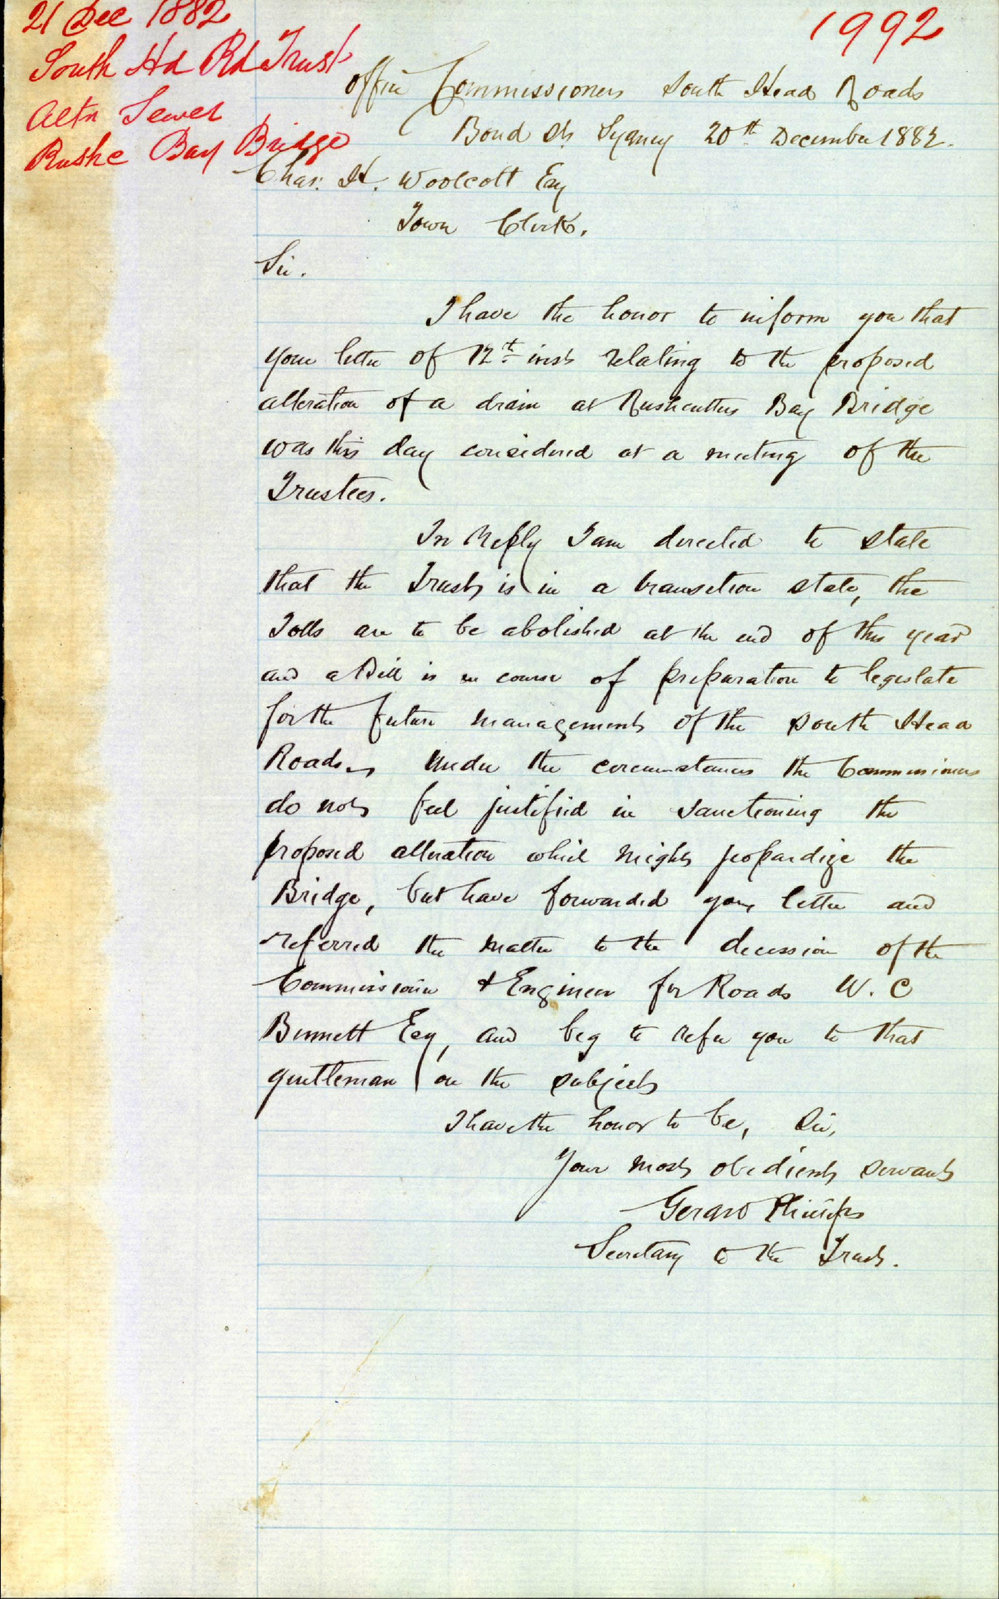 21 Dec 1882
South Hd Rd Trust
Altn Sewer
Rushc Bay Bridge
1992
Office Commissioners South Head Roads
Bond St Sydney 20th December 1882.
Chas. H. Woolcott Esq
Town Clerk.
Sir.
I have the honor to inform you that
your letter of 12th inst relating to the proposed
alteration of a drain at Rushcutters Bay Bridge
was this day considered at a meeting of the
Trustees.
In Reply I am directed to state
that the Trust is in a transition state, the
Tolls are to be abolished at the end of this year
and a Bill is in course of preparation to legislate
for the future management of the South Head
Roads. Under the circumstances the Commissioners
do not feel justified in sanctioning the
proposed alteration which might jeopardize the
Bridge, but have forwarded your letter and
referred the matter to the decission of the
Commissioner & Engineer for Roads W. C
Bennett Esq, and beg to refer you to that
gentleman on the subject
I have the honor to be, Sir,
Your most obedient servant
Gerard Phillips
Secretary to the Trust.